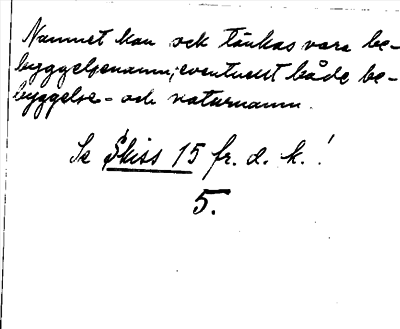 Namnet kan ock tänkas vara be-
byggelsenamn; eventuellt både be-
byggelse- och naturnamn.
Se Skiss 15 fr. d. k.!
5.